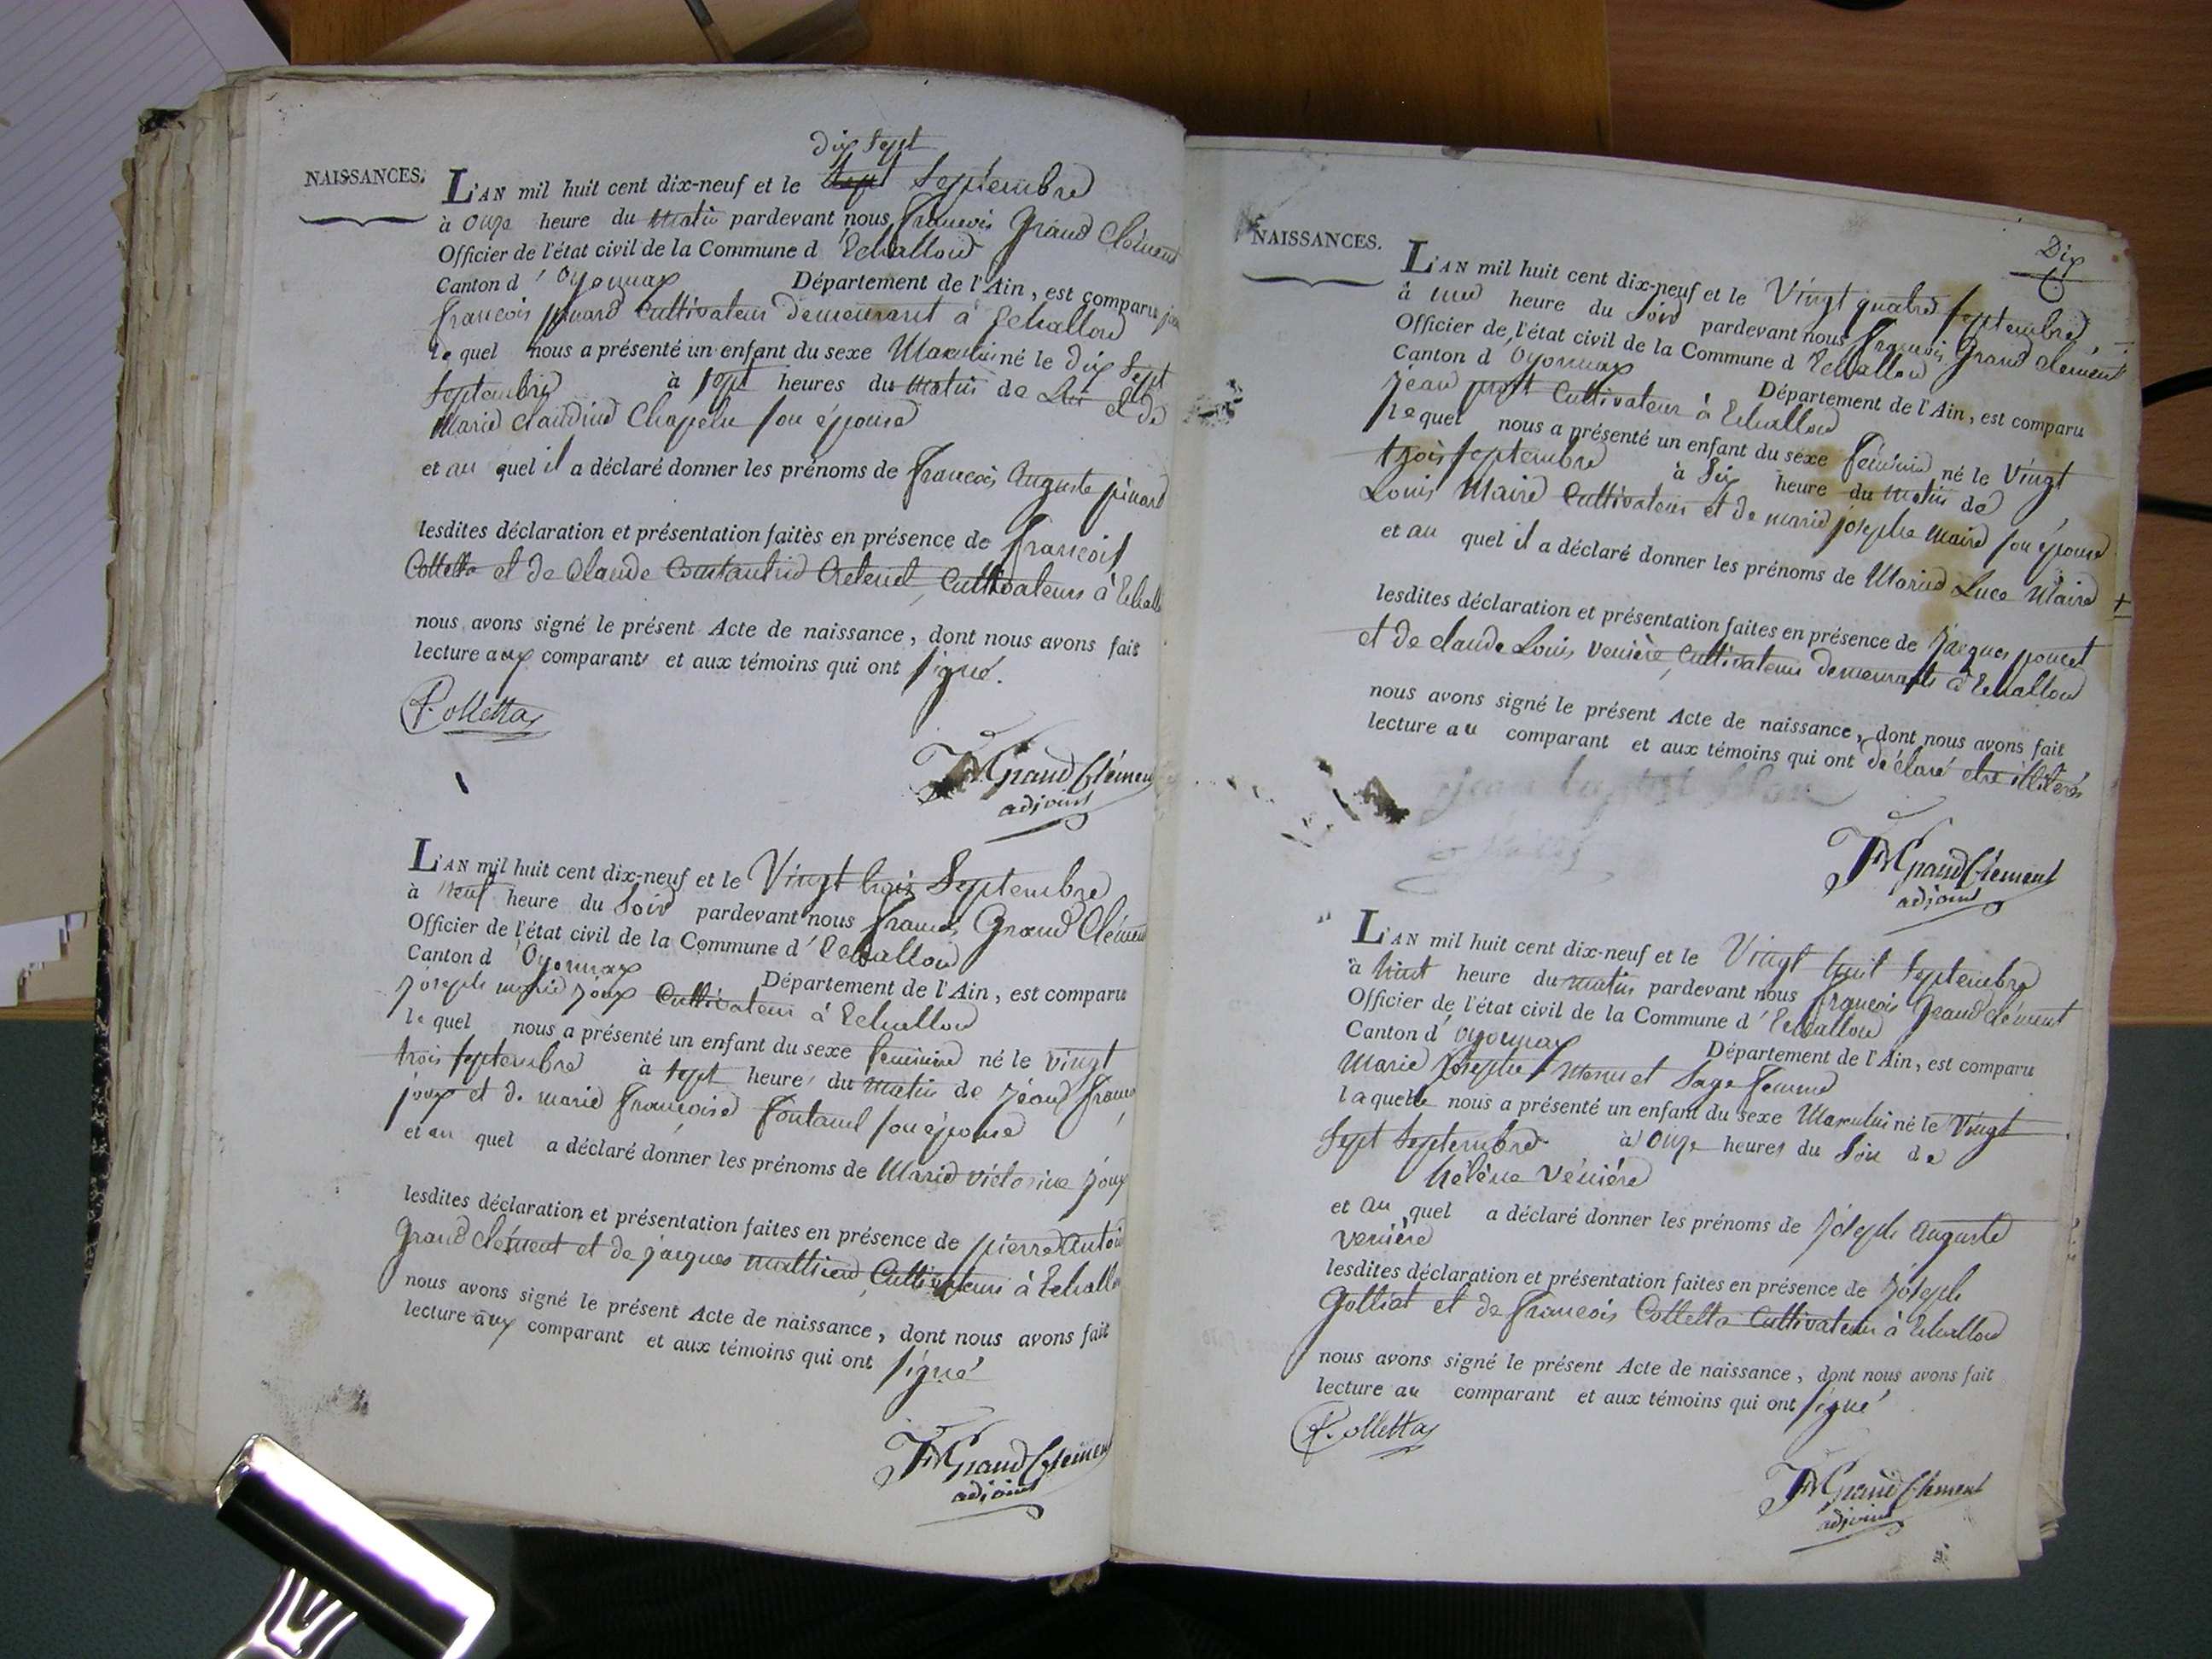 NAISSANCES.
dix sept
L'AN mil huit cent dix-neuf et le sept Septembre
à onze heure du matin pardevant nous françois Grand Clément
Officier de l'état civil de la Commune d'Echallon
Canton d'Oyonnax Département de l'Ain, est comparu
françois pinard Cultivateur demeurant à Echallon
lequel nous a présenté un enfant du sexe Masculin né le dix sept
Septembre à sept heures du matin de Lui et de
Marie Claudine Chapelu son épouse
et au quel il a déclaré donner les prénoms de françois Auguste pinard
lesdites déclaration et présentation faites en présence de françois
Colletta et de Claude Constantin Cultivateurs à Echallon
nous avons signé le présent Acte de naissance, dont nous avons fait
lecture aux comparants et aux témoins qui ont signé.
f. Colletta
Grand Clément
adjoint
L'AN mil huit cent dix-neuf et le Vingt trois Septembre
à neuf heure du Soir pardevant nous françois Grand Clément
Officier de l'état civil de la Commune d'Echallon
Canton d'Oyonnax Département de l'Ain, est comparu
joseph marie joux Cultivateur à Echallon
lequel nous a présenté un enfant du sexe feminine né le vingt
trois septembre à sept heures du matin de jean
joux et de marie françoise son épouse
et au quel a déclaré donner les prénoms de Marie victorine joux
lesdites déclaration et présentation faites en présence de pierre Antoine
Grand Clément et de jacques mathieu Cultivateurs à Echallon
nous avons signé le présent Acte de naissance, dont nous avons fait
lecture aux comparant et aux témoins qui ont signé
Grand Clément
adjoint
Dix
NAISSANCES.
L'AN mil huit cent dix-neuf et le Vingt quatre septembre
à une heure du Soir pardevant nous françois Grand Clément
Officier de l'état civil de la Commune d'Echallon
Canton d'Oyonnax Département de l'Ain, est comparu
jean Cultivateur à Echallon
lequel nous a présenté un enfant du sexe feminin né le Vingt
trois septembre à Six heure du matin de
Louis Maire Cultivateur et de marie josephe maire son épouse
et au quel il a déclaré donner les prénoms de Marie Luce Maire
lesdites déclaration et présentation faites en présence de jacques poncet
et de claude Louis veuière, Cultivateurs demeurants à Echallon
nous avons signé le présent Acte de naissance, dont nous avons fait
lecture au comparant et aux témoins qui ont déclaré être illiterés
Grand Clément
adjoint
L'AN mil huit cent dix-neuf et le Vingt huit Septembre
à huit heure du matin pardevant nous françois Grand Clément
Officier de l'état civil de la Commune d'Echallon
Canton d'Oyonnax Département de l'Ain, est comparu
Marie Josephe Sage femme
laquelle nous a présenté un enfant du sexe Masculin né le Vingt
Sept Septembre à Onze heures du Soir de
hélène Veuiére
et au quel a déclaré donner les prénoms de joseph auguste
veuiére
lesdites déclaration et présentation faites en présence de joseph
Golliet et de françois Colletta Cultivateurs à Echallon
nous avons signé le présent Acte de naissance, dont nous avons fait
lecture au comparant et aux témoins qui ont signé
f. Colletta
Grand Clément
adjoint